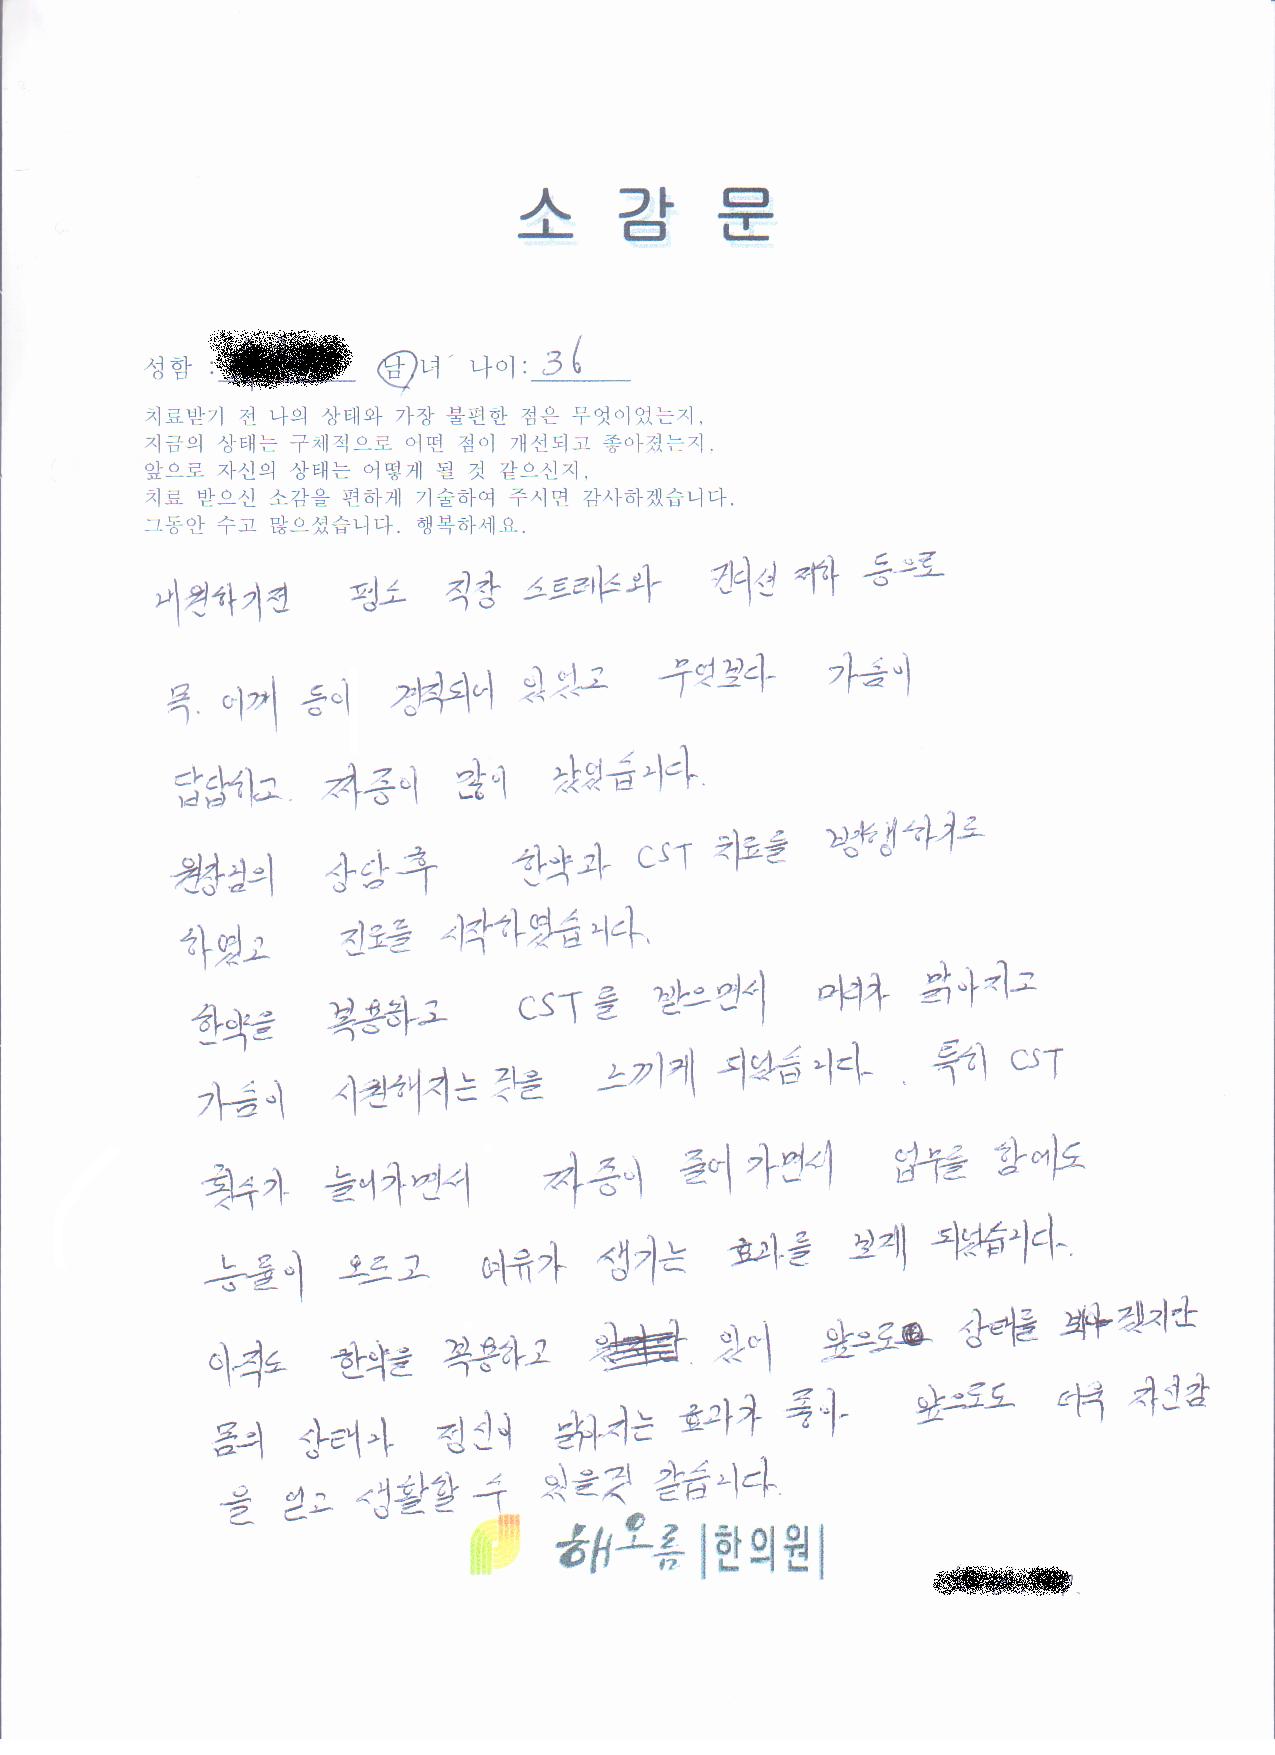 소 감 문
성함 : 남 녀 나이: 36
치료받기 전 나의 상태와 가장 불편한 점은 무엇이었는지,
지금의 상태는 구체적으로 어떤 점이 개선되고 좋아졌는지.
앞으로 자신의 상태는 어떻게 될 것 같으신지,
치료 받으신 소감을 편하게 기술하여 주시면 감사하겠습니다.
그동안 수고 많으셨습니다. 행복하세요.
내원하기전 평소 직장 스트레스와 컨디션 저하 등으로
목. 어깨 등이 경직되어 있었고 무엇보다 가슴이
답답하고. 짜증이 많이 났었습니다.
원장님의 상담 후 한약과 CST 치료를 병행하기로
하였고 진료를 시작하였습니다.
한약을 복용하고 CST를 받으면서 머리가 맑아지고
가슴이 시원해지는 것을 느끼게 되었습니다. 특히 CST
횟수가 늘어가면서 짜증이 줄어 가면서 업무를 함에도
능률이 오르고 여유가 생기는 효과를 보게 되었습니다.
아직도 한약을 복용하고 있어 앞으로 상태를 봐야겠지만
몸의 상태가 정신이 맑아지는 효과가 좋아 앞으로도 더욱 자신감
을 얻고 생활할 수 있을것 같습니다.
해오름 한의원